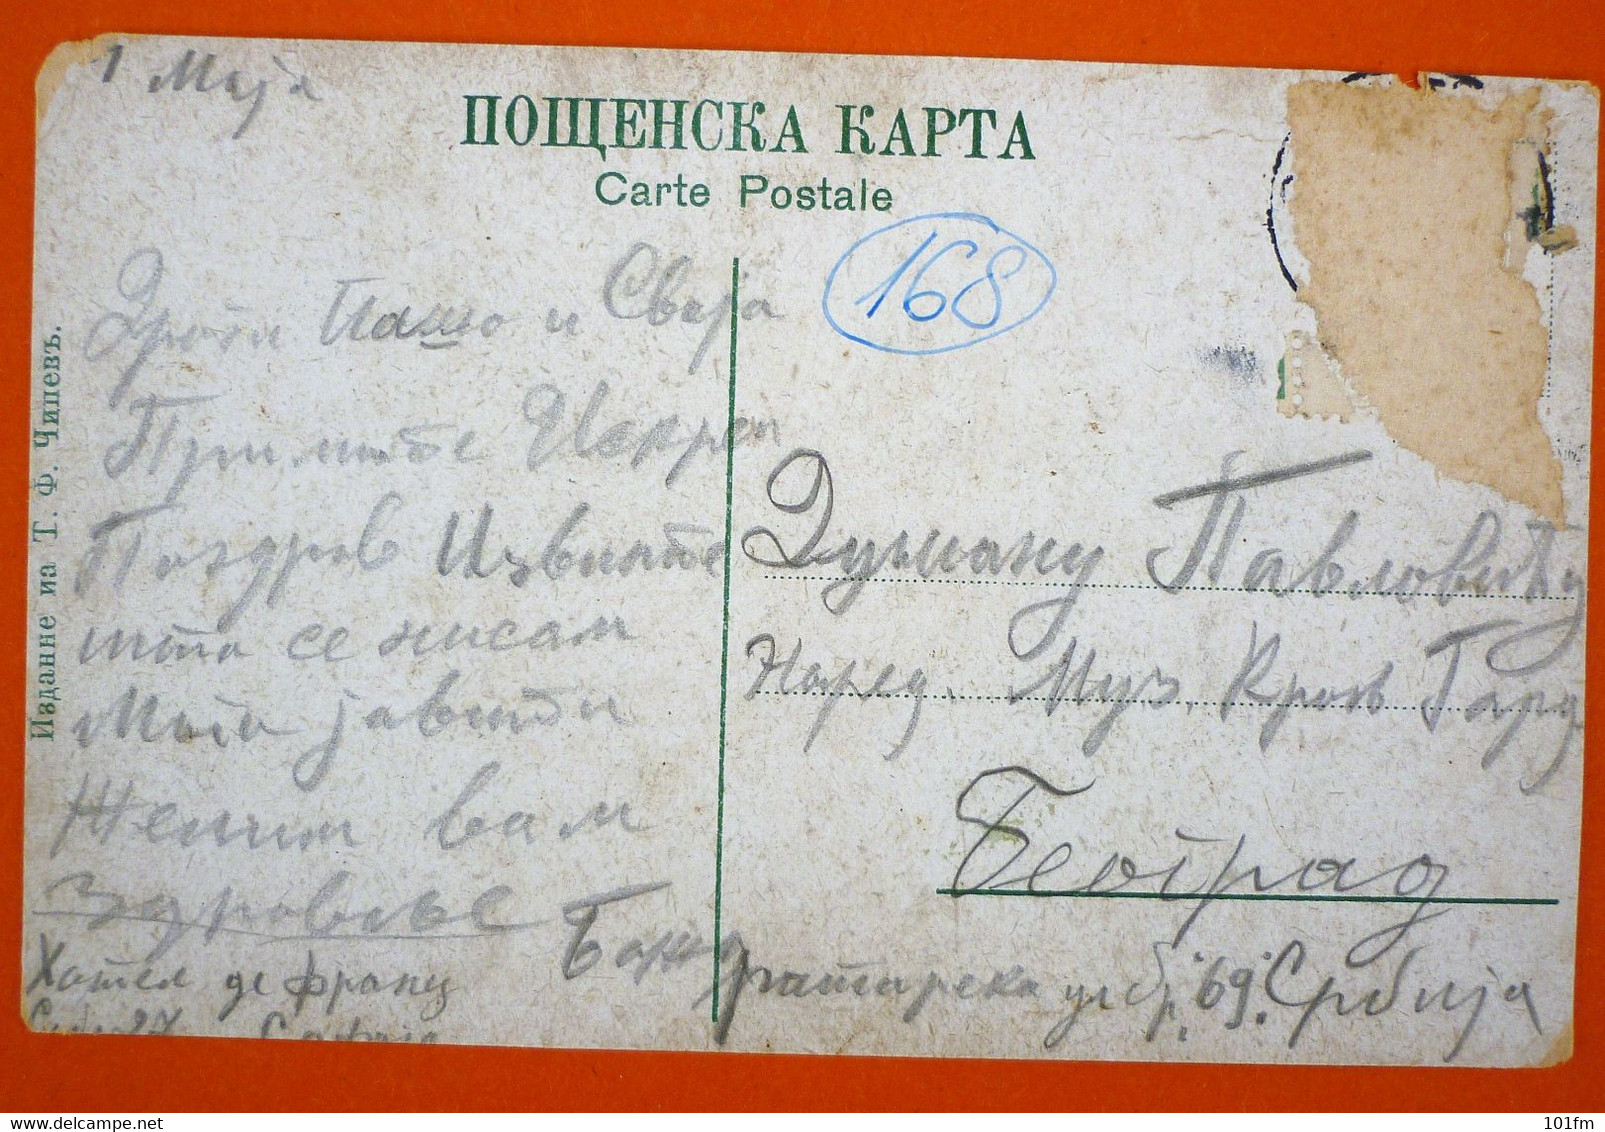 1 Маја
ПОЩЕНСКА КАРТА
Carte Postale
168
Издание на Т. Ф. Чипевъ.
Драги Пашо и Своја
Примите Искрен
Поздрав Извините
што се нисам
Мога јавити
Желим вам
здровље
Хотел де Франц
София
Душану Павловићу
Народ. Муз. Краљ Гард
Београд
ратарска ул бр. 69. Србија
101fm